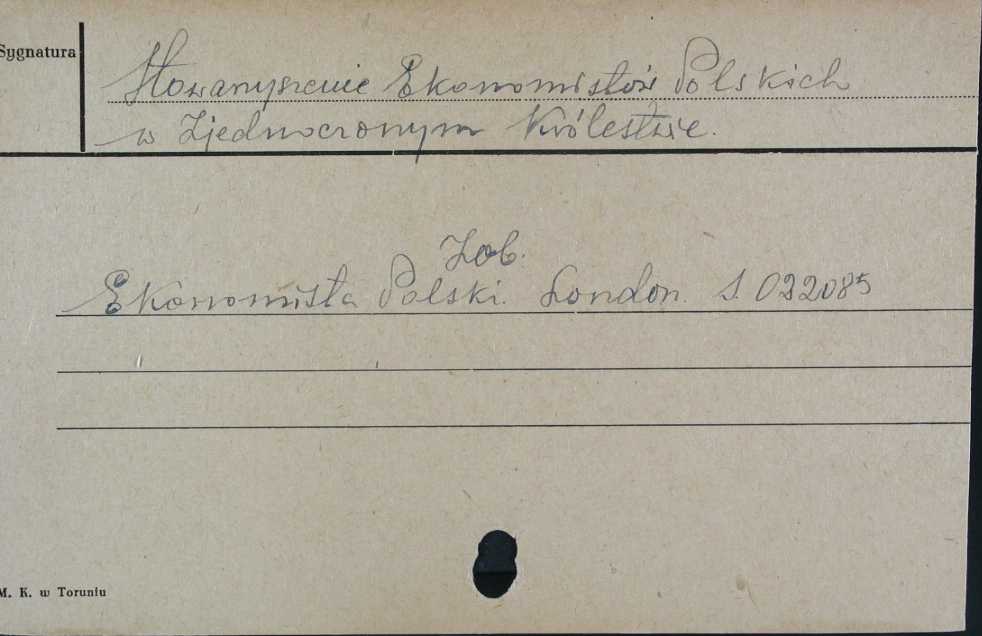 Sygnatura
Stowarzyszenie Ekonomistów Polskich
w Zjednoczonym Królestwie.
Zob.
Ekonomista Polski. London. S. 032085
M. K. w Toruniu